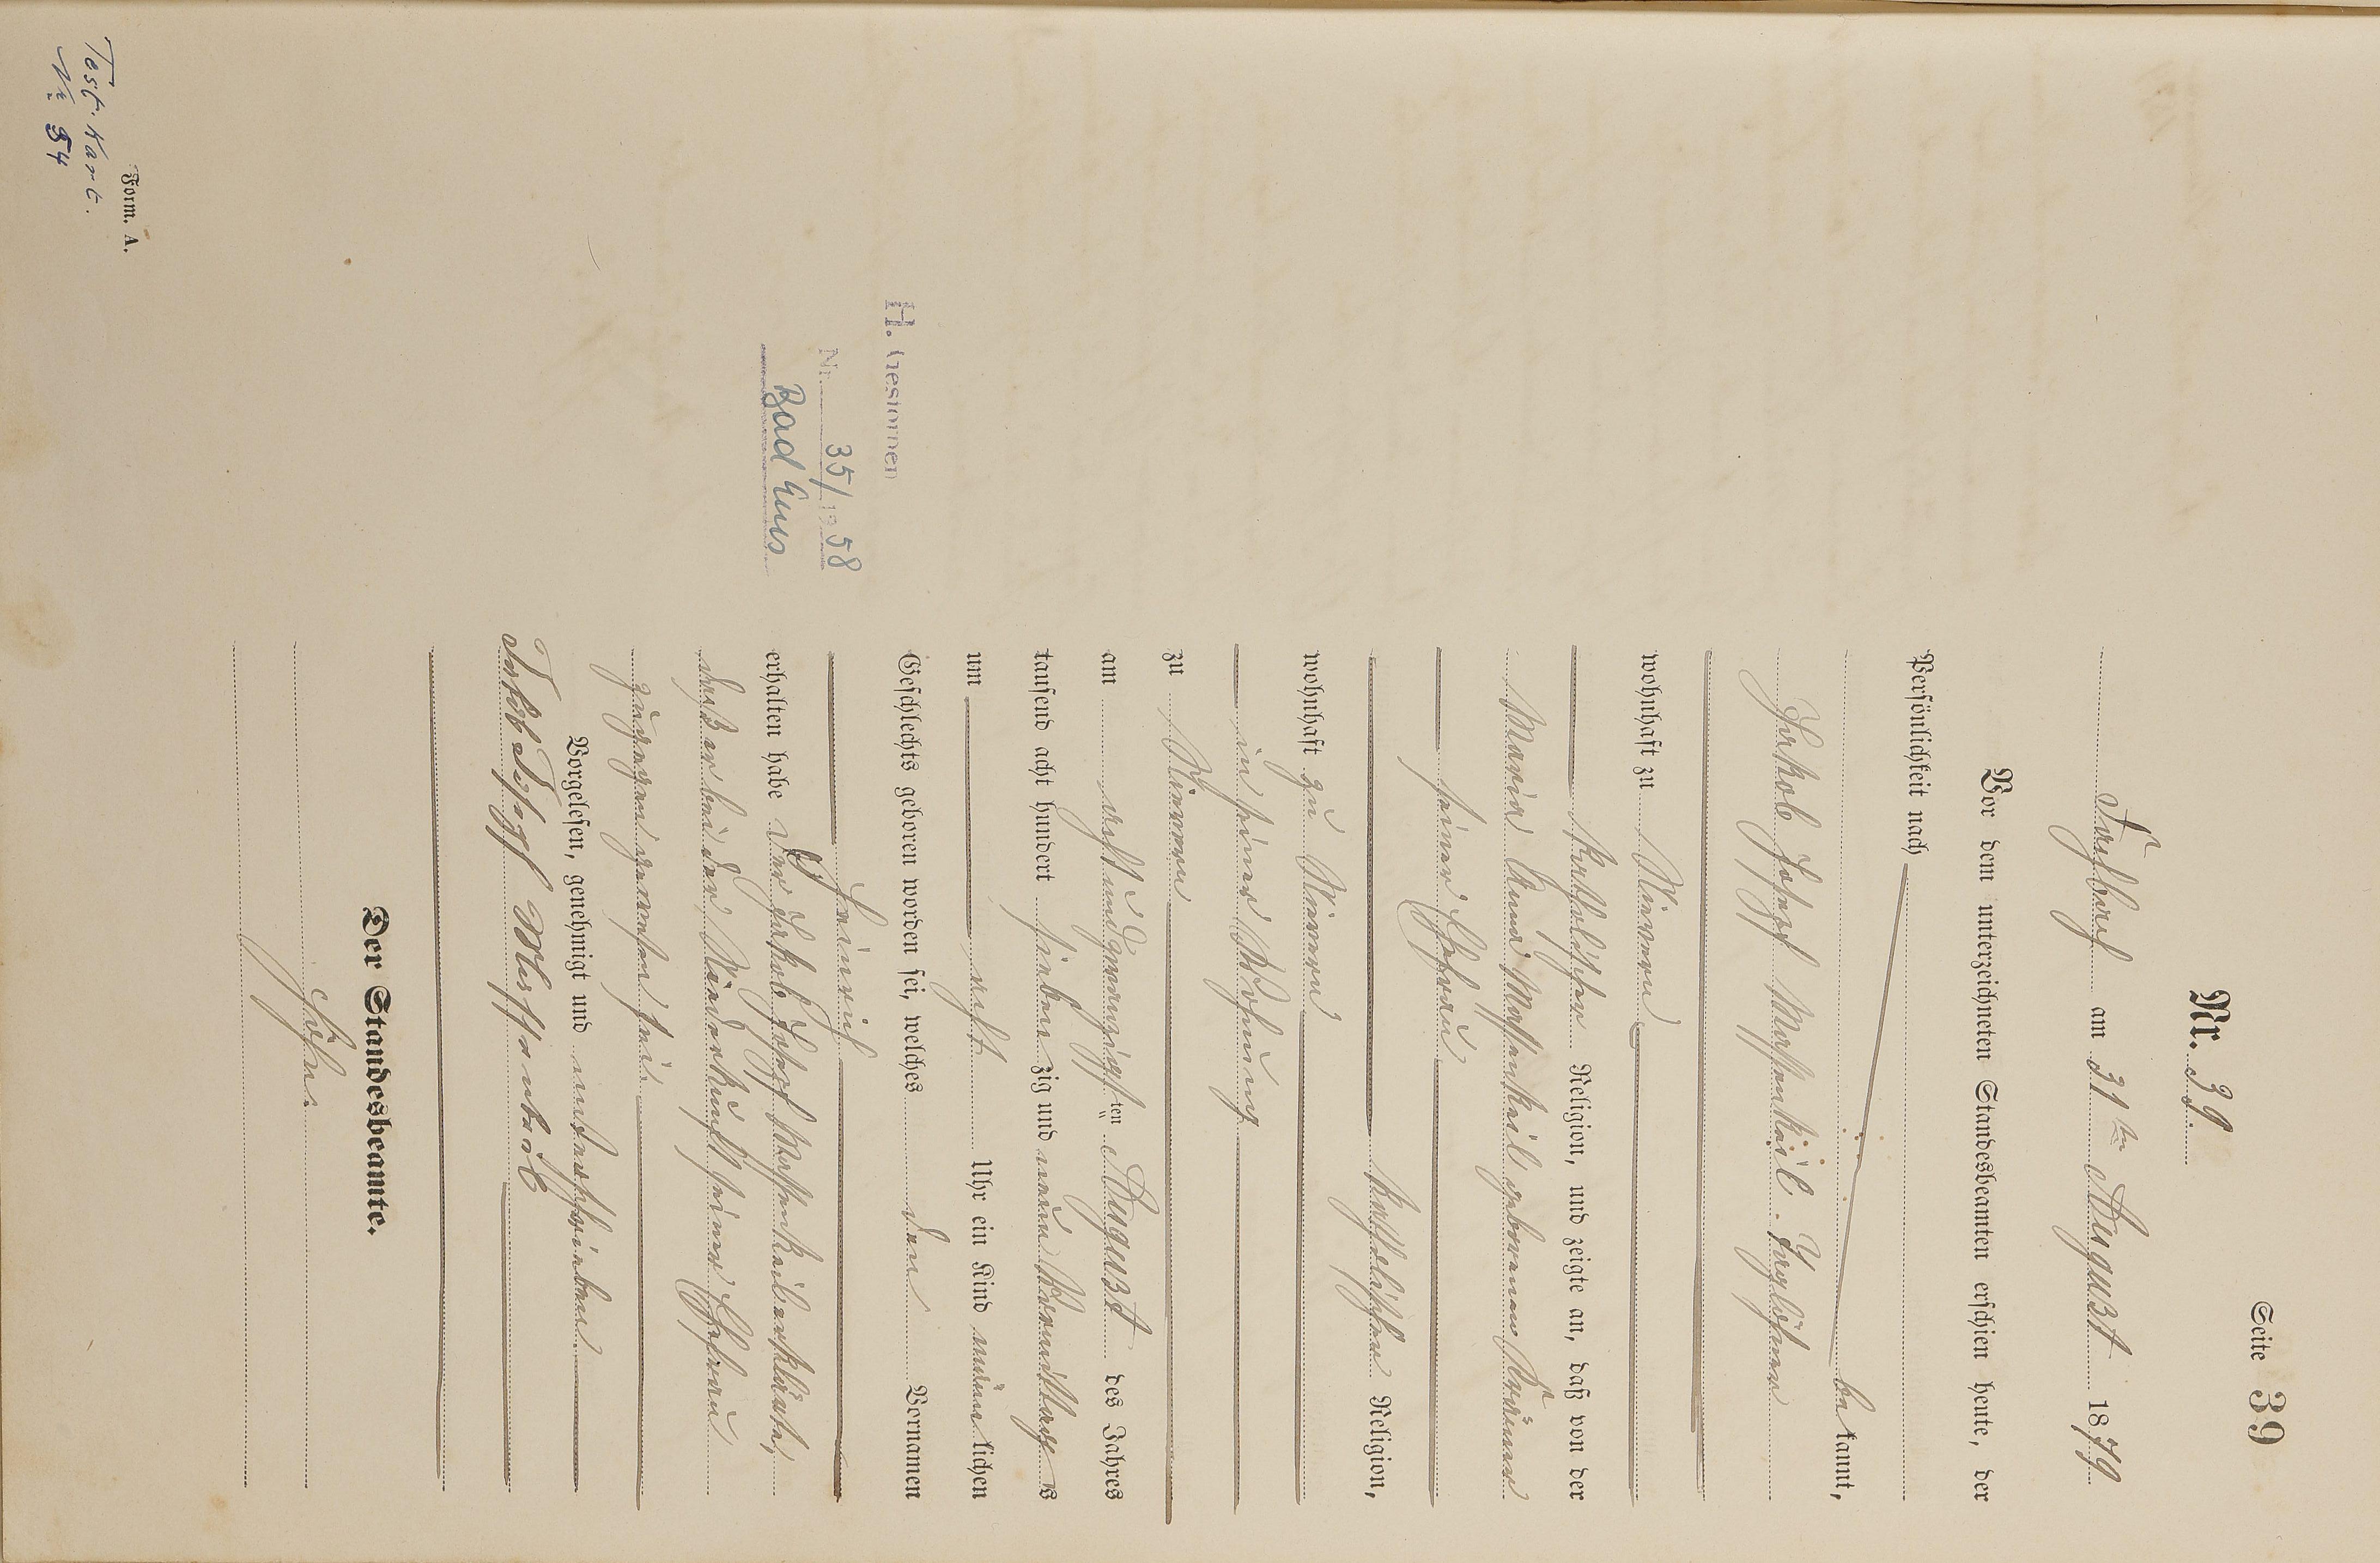 Seite 39
Nr. 39.
Fachbach am 31ten August 1879
Vor dem unterzeichneten Standesbeamten erschien heute, der
Persönlichkeit nach
bekannt,
Jakob Josef Massenkeil. Taglöhner
wohnhaft zu Nievern
katholischer Religion, und zeigte an, daß von der
Maria Anna Massenkeil geborenen
seiner Ehefrau
katholischer Religion,
wohnhaft zu Nievern
in seiner Wohnung
zu Nievern
am achtundzwanzigsten ten August des Jahres
tausend acht hundert siebenzig und neun Vormittags
um acht Uhr ein Kind männlichen
Geschlechts geboren worden sei, welches den Vornamen
Heinrich
erhalten habe Der Jakob Josef Massenkeil erklärte,
daß er bei der Niederkunft seiner Ehefrau
zugegen gewesen sei.
Vorgelesen, genehmigt und unterschrieben
Jakob Josepf Massenkeil
Der Standesbeamte.
H. Gestorben
Nr. 35/1958
Bad Ems
Form. A.
Test. Kart.
Nr. 54